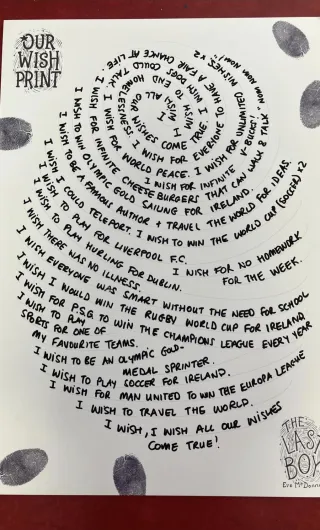 OUR
WISH
PRINT
I WISH, I WISH ALL
OUR WISHES COME TRUE!
I WISH FOR WORLD PEACE. I WISH FOR UNLIMITED WISHES. x2
I WISH FOR INFINITE V-BUCKS!
I WISH FOR INFINITE CHEESEBURGERS THAT CAN WALK & TALK
I WISH TO WIN OLYMPIC GOLD SAILING FOR IRELAND.
I WISH TO BE A FAMOUS AUTHOR + TRAVEL THE WORLD FOR IDEAS.
I WISH I COULD TELEPORT. I WISH TO WIN THE WORLD CUP (SOCCER) x2
I WISH TO PLAY FOR LIVERPOOL F.C.
I WISH FOR NO HOMEWORK
FOR THE WEEK.
I WISH TO PLAY HURLING FOR DUBLIN.
I WISH THERE WAS NO ILLNESS.
I WISH EVERYONE WAS SMART WITHOUT THE NEED FOR SCHOOL
I WISH I WOULD WIN THE RUGBY WORLD CUP FOR IRELAND
I WISH FOR P.S.G. TO WIN THE CHAMPIONS LEAGUE EVERY YEAR
I WISH TO PLAY
SPORTS FOR ONE OF
MY FAVOURITE TEAMS.
I WISH TO BE AN OLYMPIC GOLD-
MEDAL SPRINTER.
I WISH TO PLAY SOCCER FOR IRELAND.
I WISH FOR MAN UNITED TO WIN THE EUROPA LEAGUE
I WISH TO TRAVEL THE WORLD.
I WISH, I WISH ALL OUR WISHES
COME TRUE!
THE
LAST
BOY
Eve McDonnell